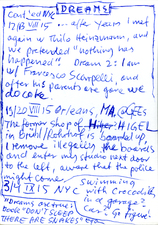 DREAMS
Cont'ed NYC
17/18 VIII 15 ... after years I met
again w/ Thilo Heinzmann, and
we pretended "nothing has
happened". Dream 2: I am
w/ Francesco Scarpelli, and
after his parents are gone we
do coke.
19/20 VIII 15 Orleans, MA, @CEES
The former shop of HIGEL
in Brühl/Rohrhof is boarded up,
I remove illegally the boards
and enter my studio next door
to the left, aware that the police
might come.
3/4 IX 15 NYC
swimming
with Crocodile
in a garage?
Car? Go figure!
"Dreams are true:
DON'T SLEEP
THERE ARE SNAKES"